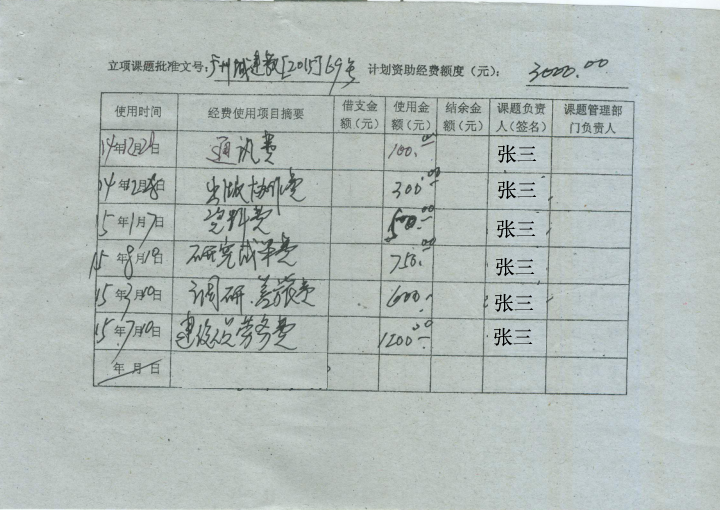 立项课题批准文号: [2015]69号 计划资助经费额度(元): 3000.00
使用时间 经费使用项目摘要 借支金额(元) 使用金额(元) 结余金额(元) 课题负责人(签名) 课题管理部门负责人
14年12月 日 通讯费 100.00 张三
14年12月 日 出版协作费 300.00 张三
15年1月7日 资料费 500.00 张三
15年 月19日 研究成果费 750.00 张三
15年7月10日 调研、差旅费 600 张三
15年7月10日 劳务费 1200.00 张三
年 月 日